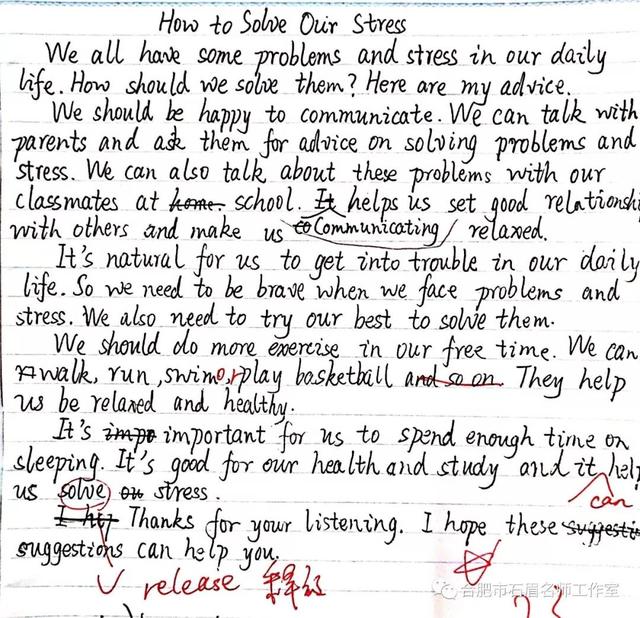 How to Solve Our Stress
We all have some problems and stress in our daily
life. How should we solve them? Here are my advice.
We should be happy to communicate. We can talk with
parents and ask them for advice on solving problems and
stress. We can also talk about these problems with our
classmates at home. school. It helps us set good relationshi
with others and make us to Communicating relaxed.
It's natural for us to get into trouble in our daily
life. So we need to be brave when we face problems and
stress. We also need to try our best to solve them.
We should do more exercise in our free time. We can
walk, run, swim, or play basketball and so on. They help
us be relaxed and healthy.
It's impo important for us to spend enough time on
sleeping. It's good for our health and study and it help
can
us solve on stress.
I ho Thanks for your listening. I hope these suggesti
suggestions can help you.
release 释放
合肥市石眉名师工作室